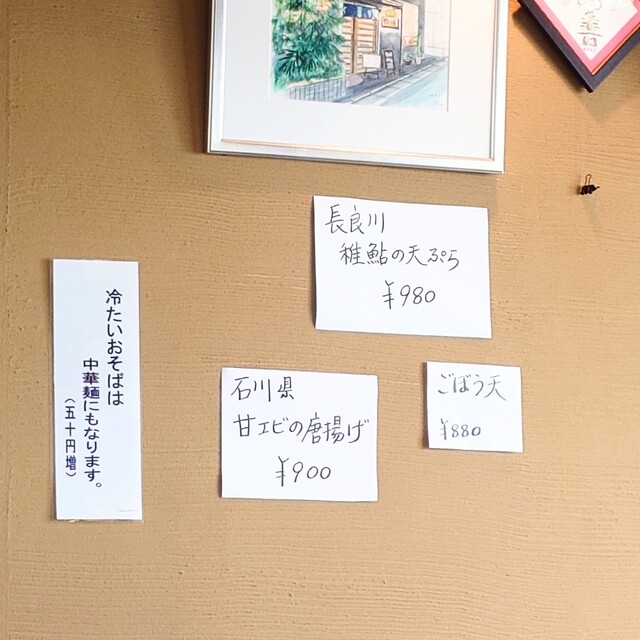 長良川
稚鮎の天ぷら
¥980
冷たいおそばは
中華麺にもなります。
（五十円増）
石川県
甘エビの唐揚げ
¥900
ごぼう天
¥880